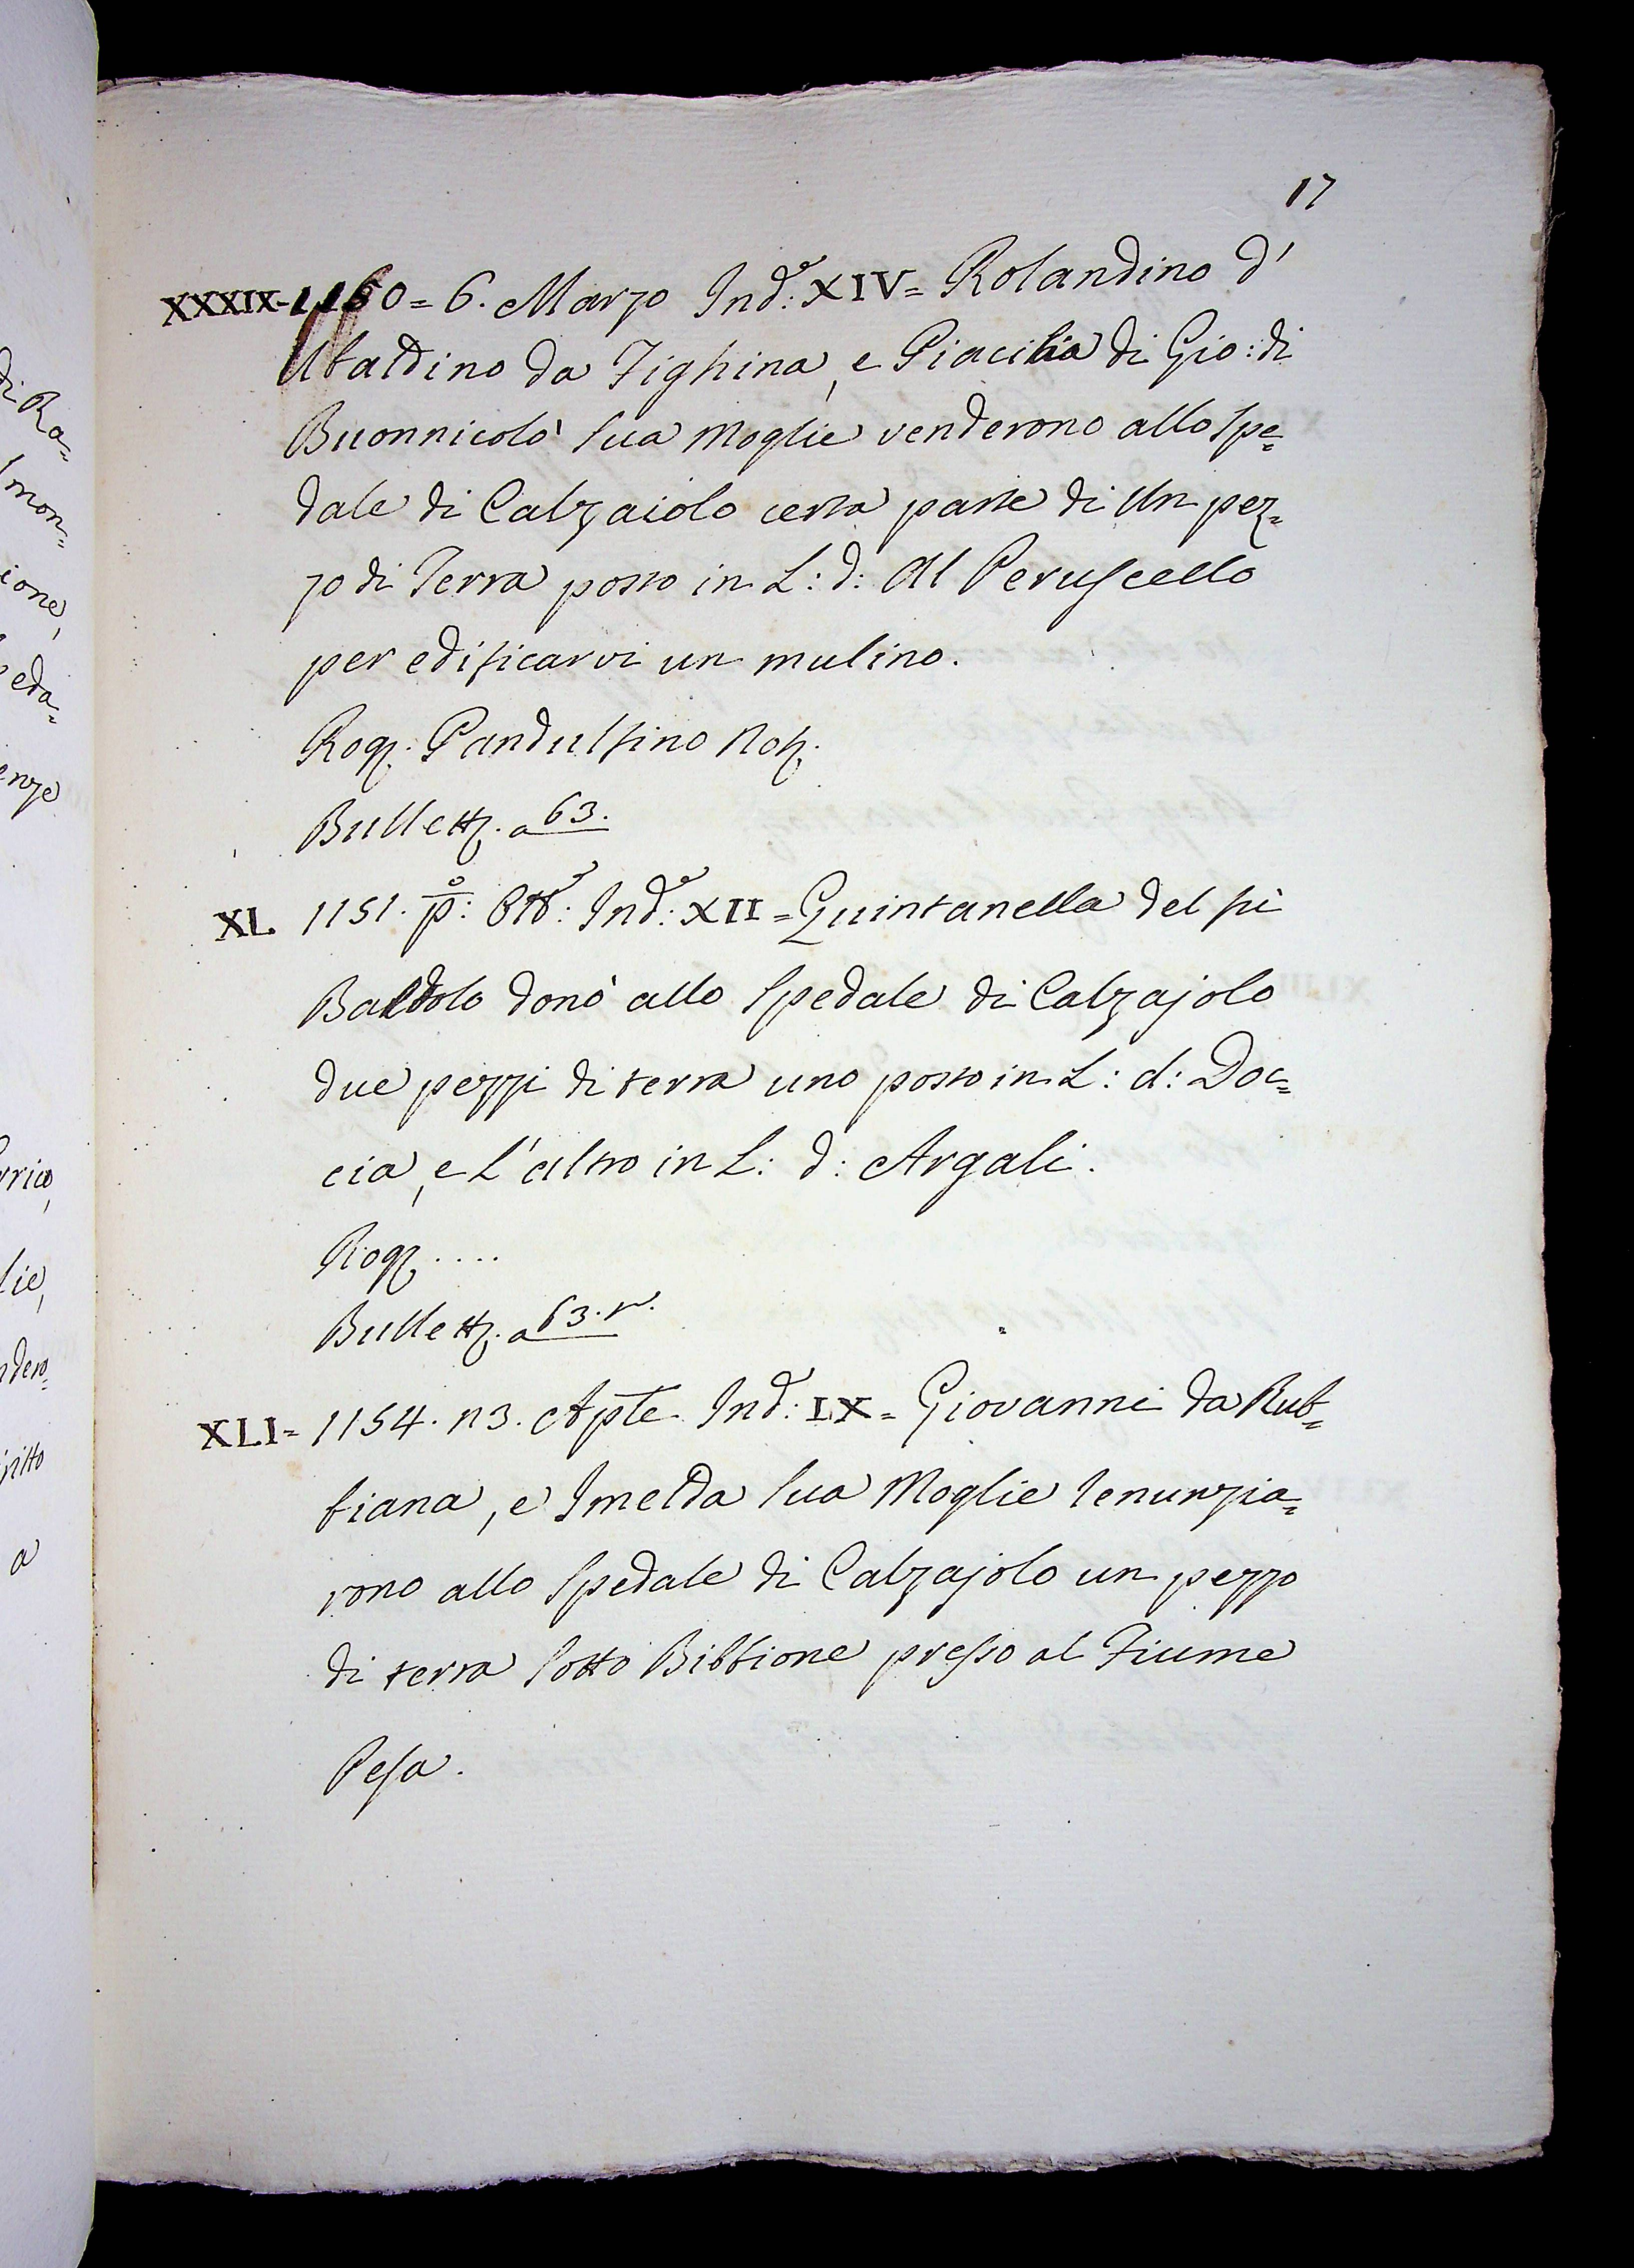 17
XXXIX-1150= 6. Marzo Ind.e: XIV= Rolandino d'
Ubaldino da Fighina, e Piacilia di Gio: di
Buonnicolò sua Moglie venderono allo Spe=
dale di Calzaiolo certa parte di Un pez=
zo di Terra posto in L: d: Al Peruscello
per edificarvi un mulino.
Rog. Pandulfino Not.
Bullett. a 63.
XL. 1151. p.o: Ott.e: Ind.e: XII= Quintanella del fù
Baldolo donò allo Spedale di Calzajolo
due pezzi di terra uno posto in L: d: Doc=
cia, e l'altro in L: d: Argali.
Rog. ....
Bullett. a 63. r.
XLI= 1154. 13. Aple Ind.e: IX= Giovanni da Rub=
biana, e Imelda sua Moglie renunzia=
rono allo Spedale di Calzajolo un pezzo
di terra sotto Bibbione presso al Fiume
Pesa.